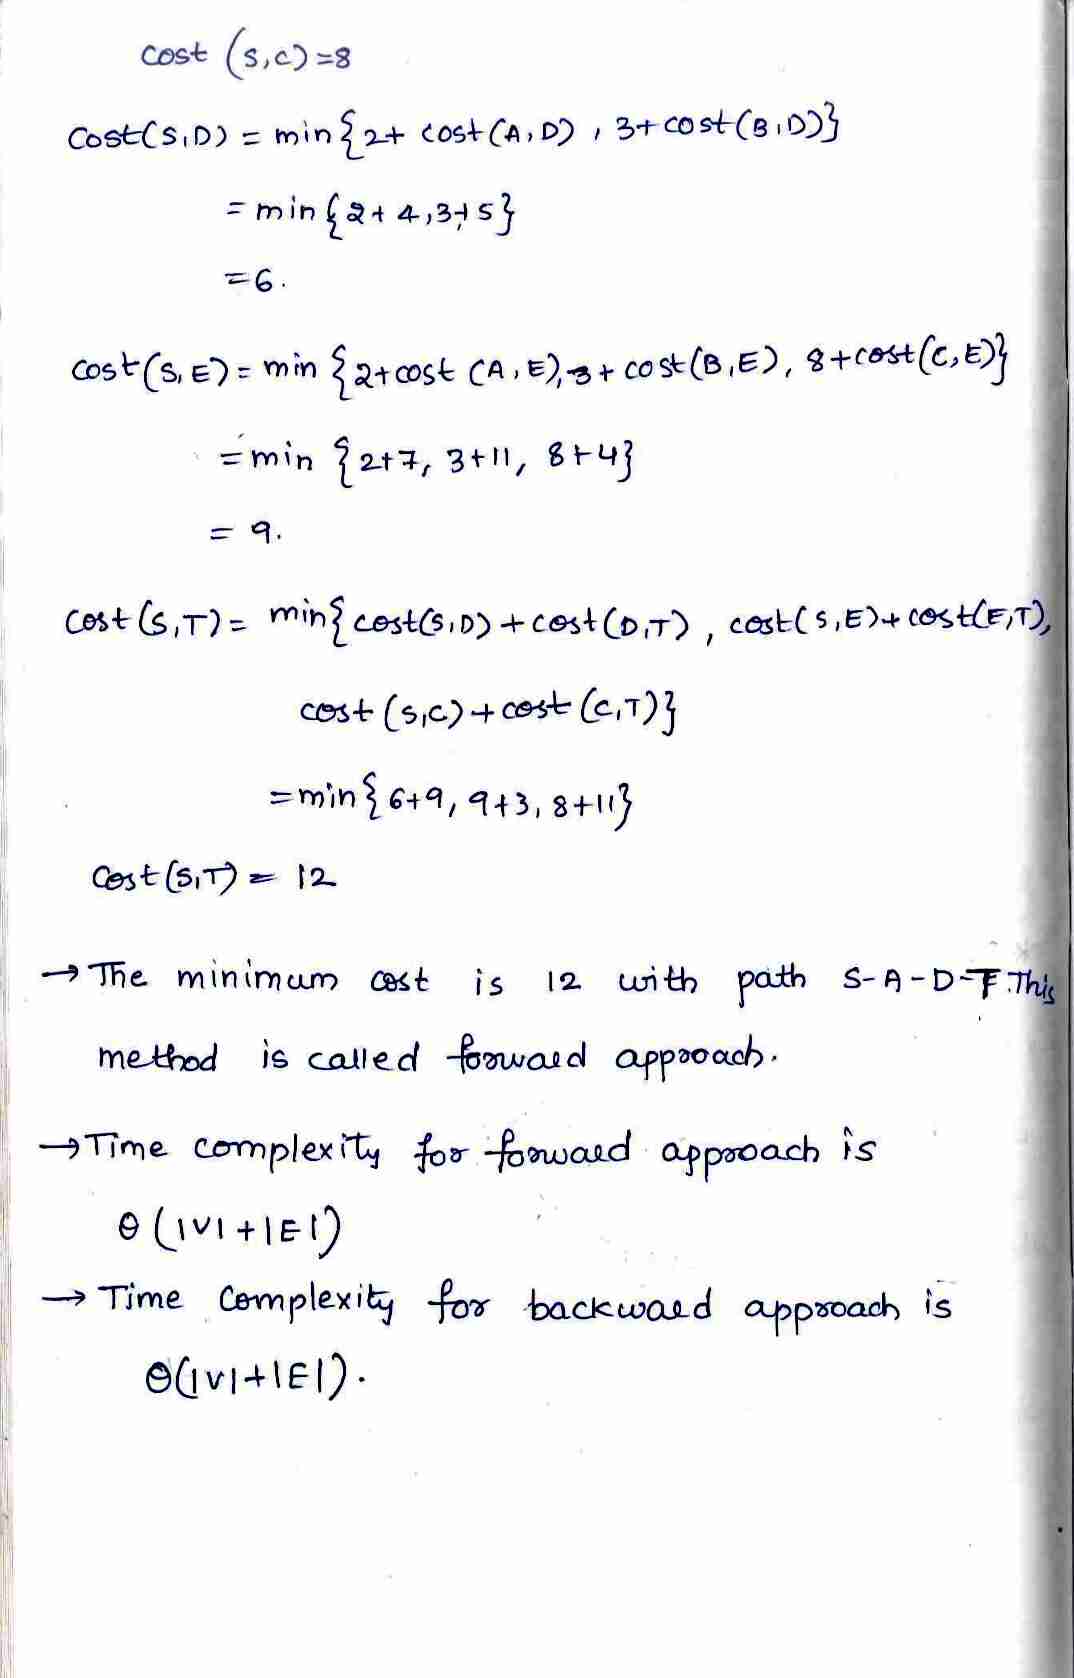 cost (S,C)=8
Cost(S,D) = min{2+ cost(A,D) , 3+cost(B,D)}
= min{2+4,3+5}
=6.
cost(S,E)= min {2+cost (A,E),3+ cost(B,E), 8+cost(C,E)}
=min {2+7, 3+11, 8+4}
= 9.
cost(S,T)= min{cost(S,D)+cost(D,T) , cost(S,E)+cost(E,T),
cost(S,C)+cost(C,T)}
=min{6+9, 9+3, 8+11}
Cost(S,T) = 12
→ The minimum cost is 12 with path S-A-D-T.This
method is called forward approach.
→ Time complexity for forward approach is
θ(|V|+|E|)
→ Time Complexity for backward approach is
θ(|V|+|E|).